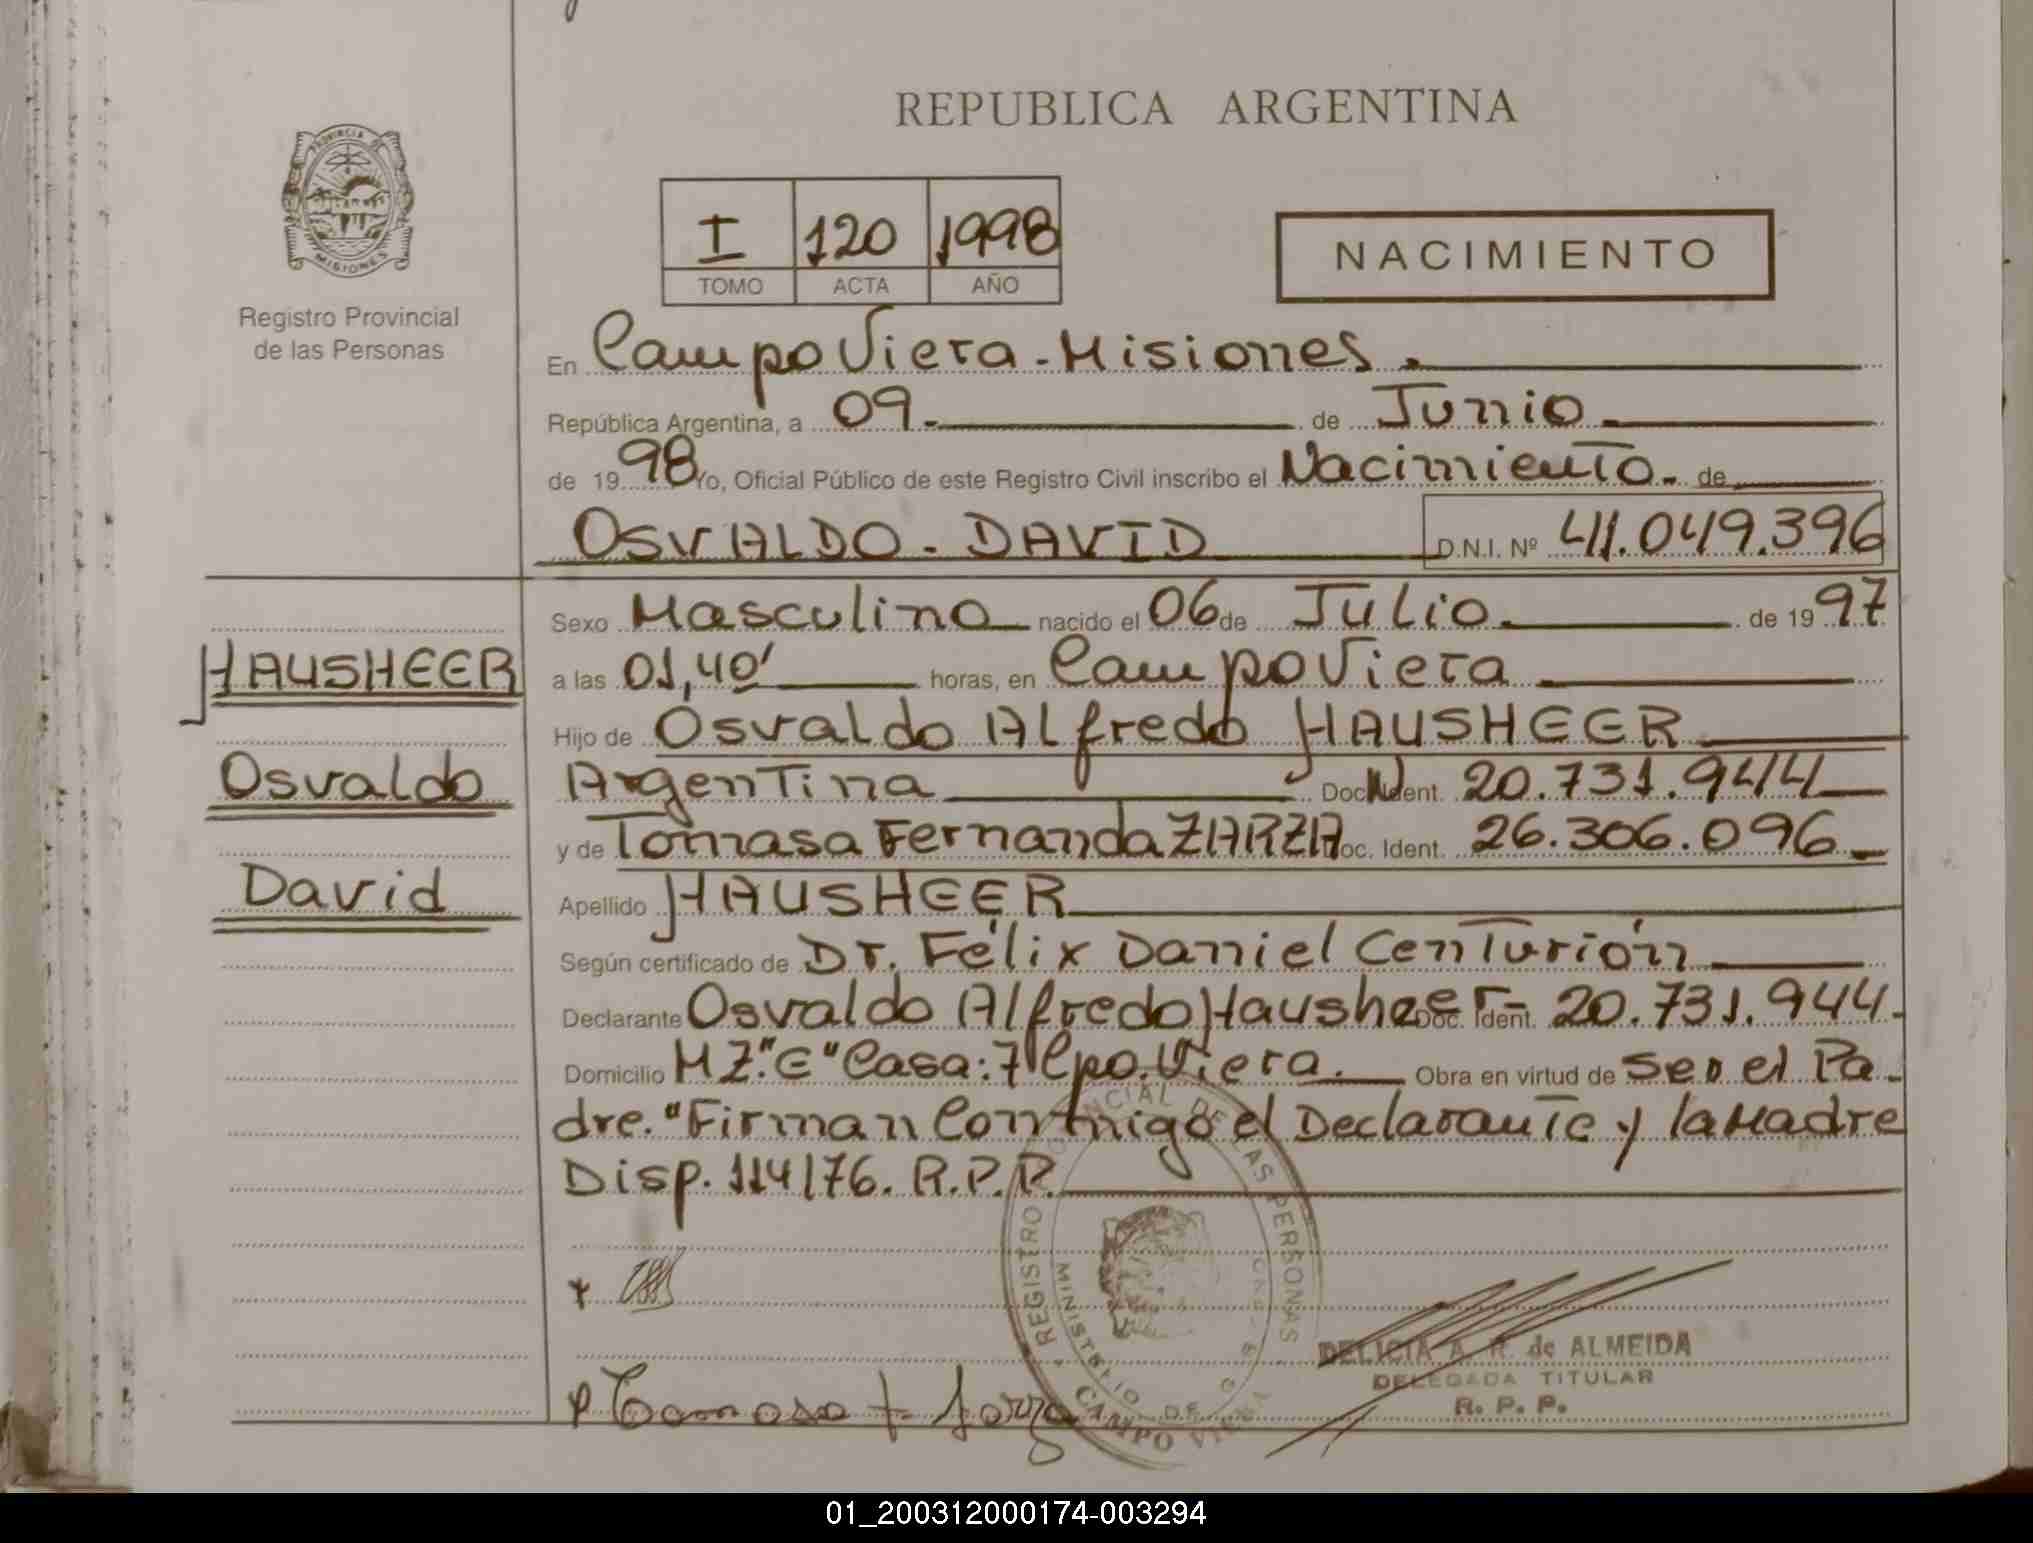 REPUBLICA ARGENTINA
PROVINCIA DE
MISIONES
Registro Provincial
de las Personas
I 120 1998
TOMO ACTA AÑO
NACIMIENTO
En Campo Viera - Misiones.
República Argentina, a 09.- de Junio
de 1998 Yo, Oficial Público de este Registro Civil inscribo el Nacimiento. de
OSVALDO - DAVID D.N.I. Nº 41.049.396
Sexo Masculino nacido el 06 de Julio. de 1997
HAUSHEER
a las 01,40' horas, en Campo Viera
Hijo de Osvaldo Alfredo HAUSHEER
Osvaldo
Argentina Doc. Ident. 20.731.944
y de Tomasa Fernanda ZARZA Doc. Ident. 26.306.096
David
Apellido HAUSHEER
Según certificado de Dr. Félix Daniel Centurión
Declarante Osvaldo Alfredo Hausheer - Doc. Ident. 20.731.944.
Domicilio MZ."E" Casa: 7 Cpo. Viera. Obra en virtud de ser el Pa-
dre. "Firman Conmigo el Declarante y la Madre
Disp. 114/76. R.P.P.
REGISTRO PROVINCIAL DE LAS PERSONAS
MINISTERIO DE
CAMPO VIERA
DELICIA A. R. de ALMEIDA
DELEGADA TITULAR
R. P. P.
Tomasa F Zarza
01_200312000174-003294